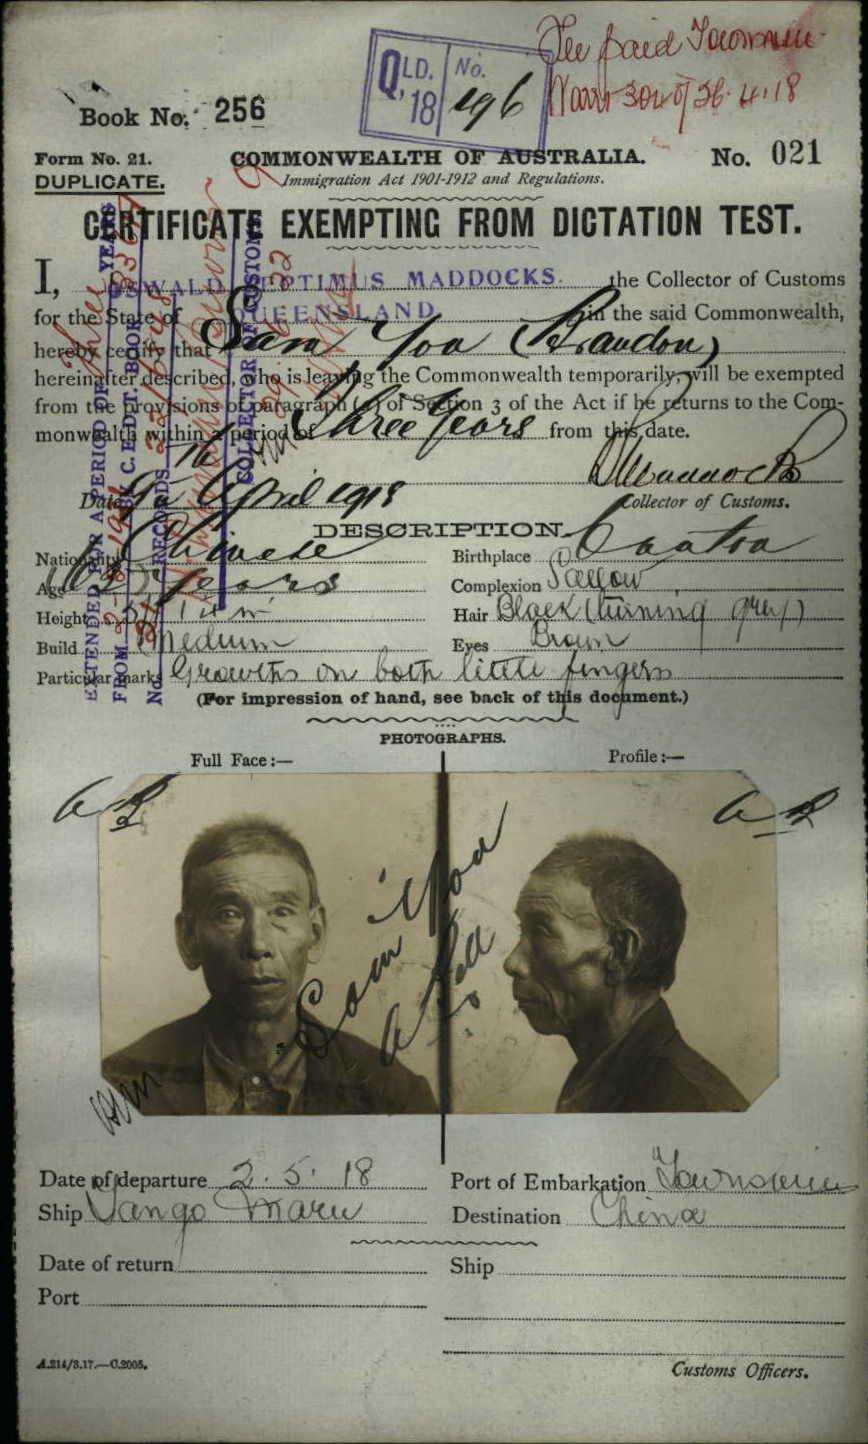 Fee paid Townsville
26.4.18
QLD. No.
'18 196
Book No. 256
Form No. 21. COMMONWEALTH OF AUSTRALIA. No. 021
DUPLICATE. Immigration Act 1901-1912 and Regulations.
CERTIFICATE EXEMPTING FROM DICTATION TEST.
I, OSWALD SEPTIMUS MADDOCKS. the Collector of Customs
for the State of QUEENSLAND in the said Commonwealth,
hereby certify that Sam Yoa (Brandon)
hereinafter described, who is leaving the Commonwealth temporarily, will be exempted
from the provisions of paragraph (a) of Section 3 of the Act if he returns to the Com-
monwealth within a period of Three Years from this date.
Date April 1918 Collector of Customs.
DESCRIPTION.
Nationality Chinese Birthplace Canton
Age years Complexion Sallow
Height Hair Black (turning grey)
Build Medium Eyes Brown
Particular marks Growths on both little fingers
(For impression of hand, see back of this document.)
PHOTOGRAPHS.
Full Face:— Profile:—
Sam Yoa
Date of departure 2.5.18 Port of Embarkation Townsville
Ship Tango Maru Destination China
Date of return Ship
Port
A.214/3.17.—C.2005. Customs Officers.
EXTENDED FOR A PERIOD OF three YEARS
FROM
C.E.D.T. BOOK
No. RECORDS.
COLLECTOR OF CUSTOMS